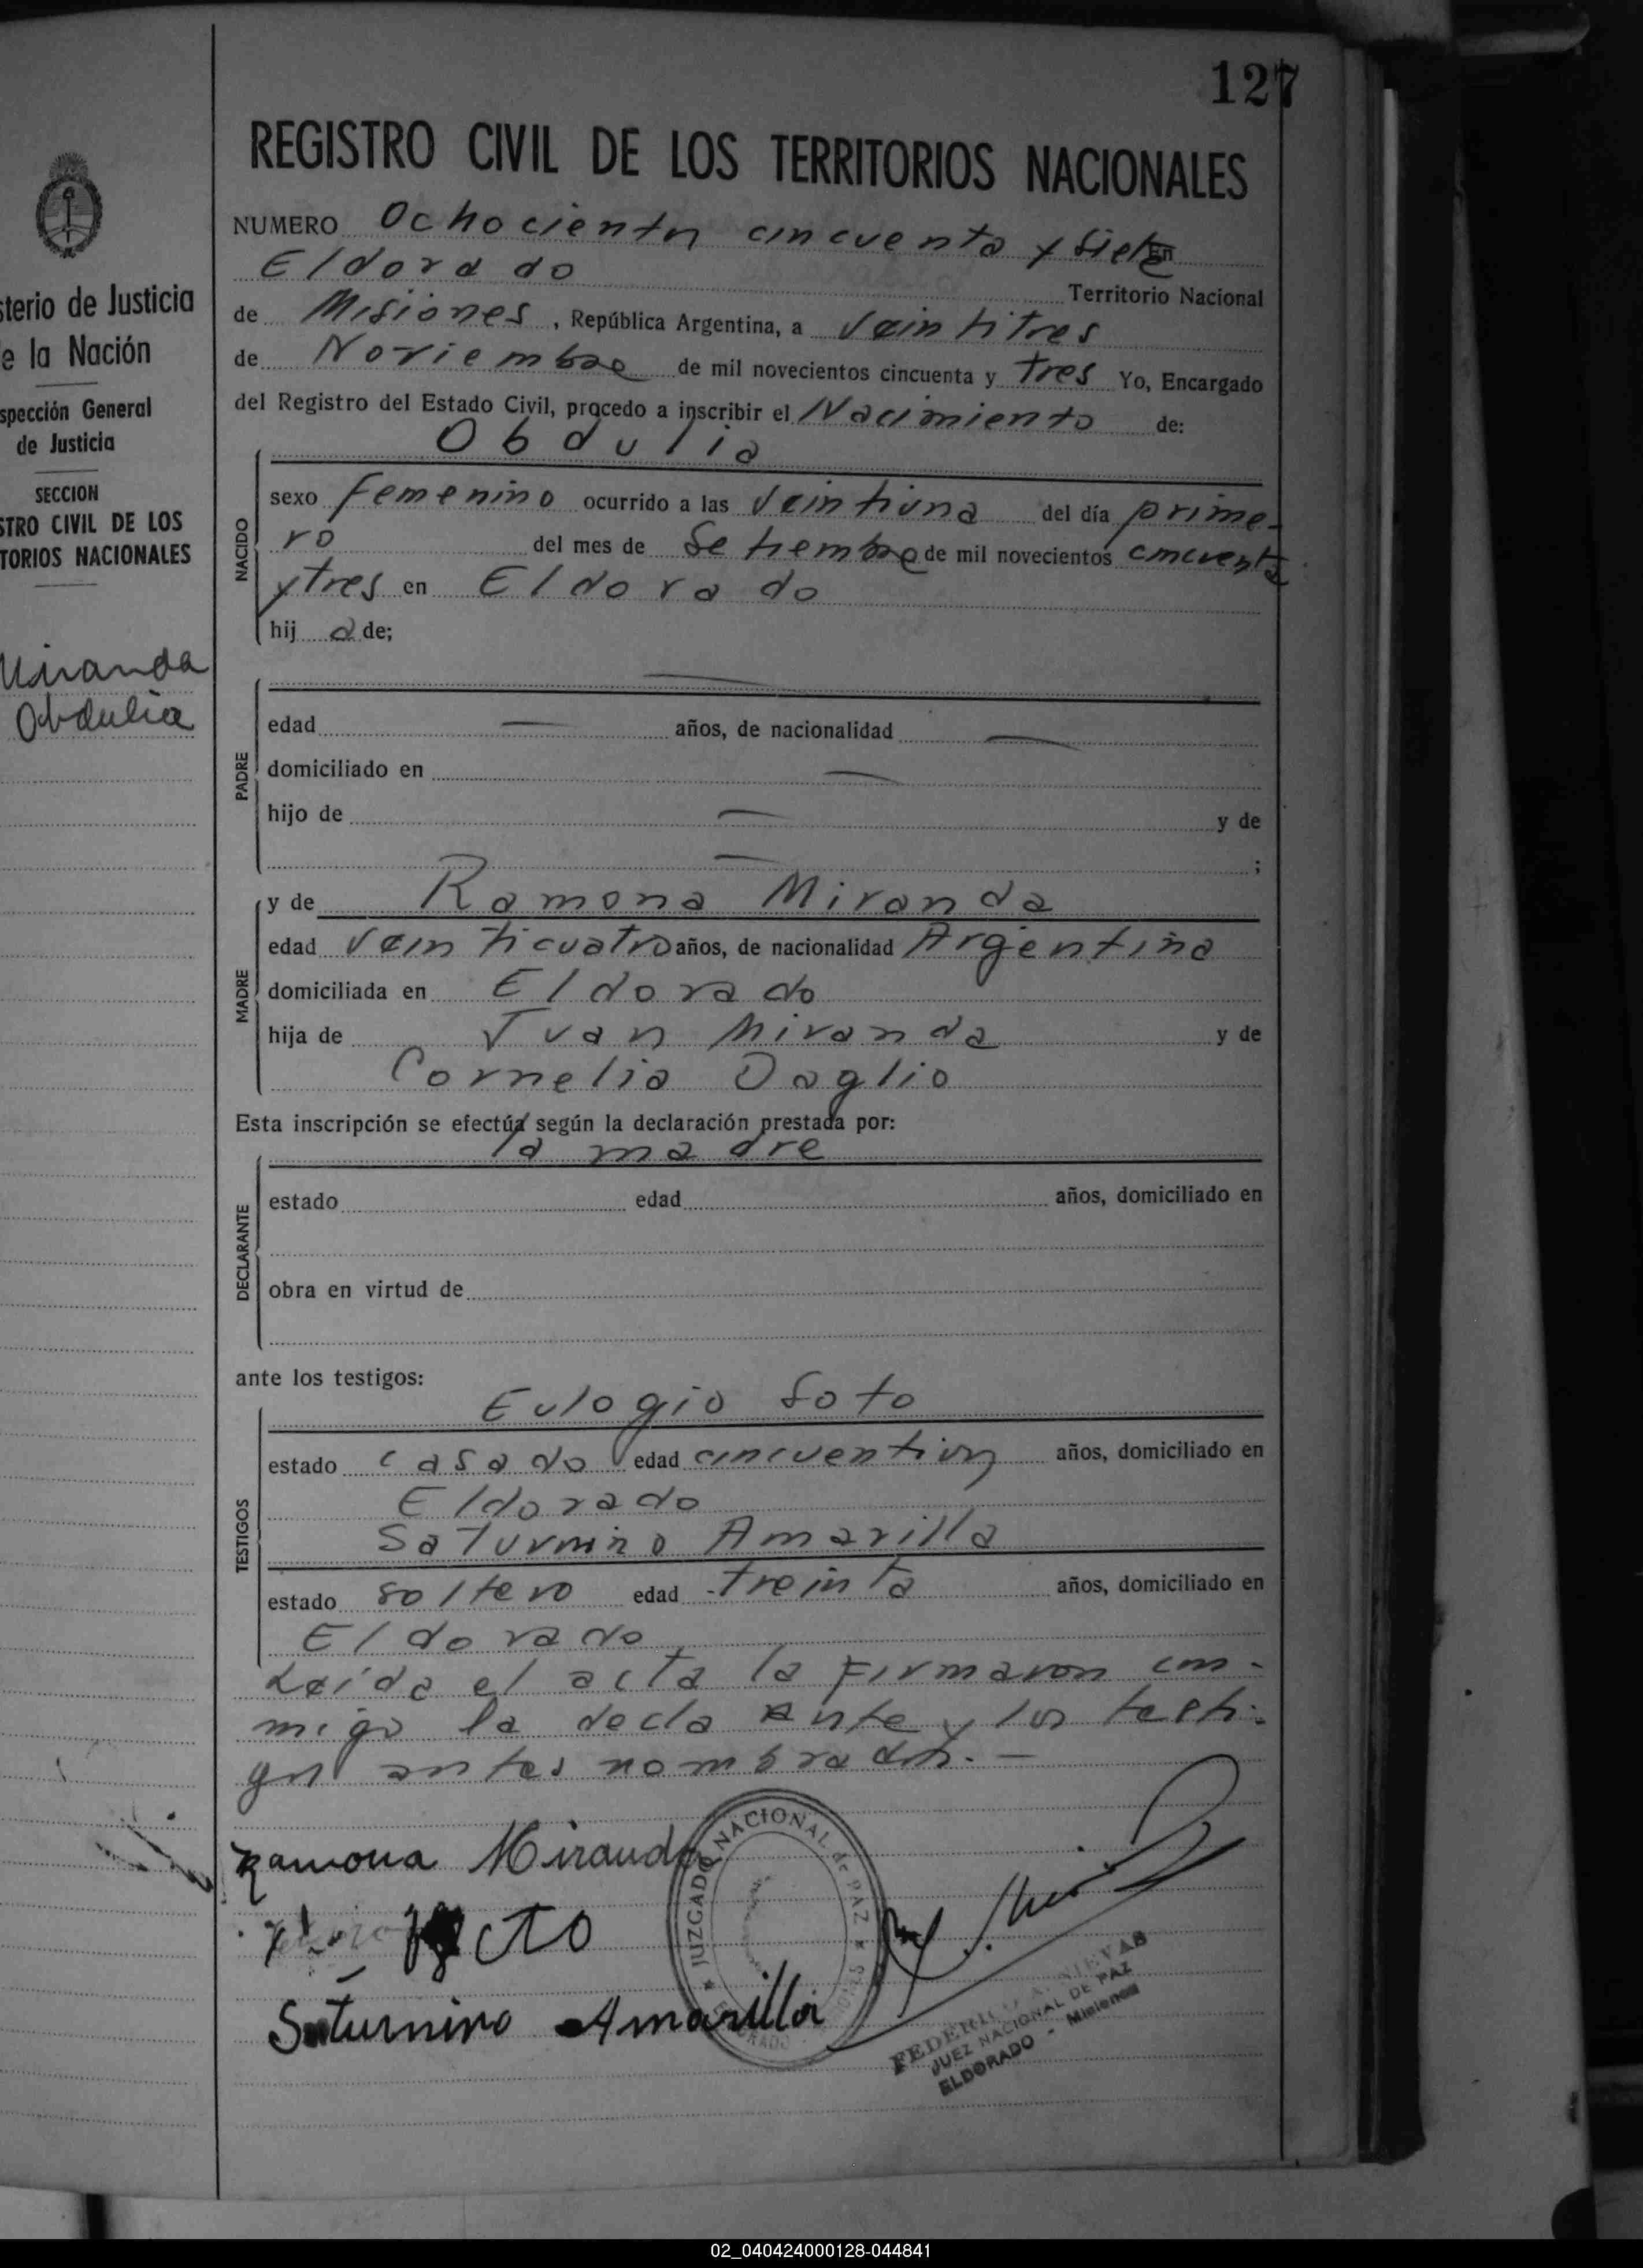 127
REGISTRO CIVIL DE LOS TERRITORIOS NACIONALES
NUMERO Ochocientos cincuenta y siete En
Eldorado Territorio Nacional
de Misiones, República Argentina, a veintitres
de Noviembre de mil novecientos cincuenta y tres Yo, Encargado
del Registro del Estado Civil, procedo a inscribir el Nacimiento de:
Obdulia
NACIDO
sexo femenino ocurrido a las veintiuna del día prime-
ro del mes de Setiembre de mil novecientos cincuenta
y tres en Eldorado
hij a de;
PADRE
edad años, de nacionalidad
domiciliado en
hijo de y de
;
MADRE
y de Ramona Miranda
edad veinticuatro años, de nacionalidad Argentina
domiciliada en Eldorado
hija de Juan Miranda y de
Cornelia Daglio
Esta inscripción se efectúa según la declaración prestada por:
la madre
DECLARANTE
estado edad años, domiciliado en
obra en virtud de
ante los testigos:
TESTIGOS
Eulogio Soto
estado casado edad cincuentiun años, domiciliado en
Eldorado
Saturnino Amarilla
estado soltero edad treinta años, domiciliado en
Eldorado
Leída el acta la firmaron con-
migo la decla ante y los testi-
gos antes nombrados.-
Ramona Miranda
Saturnino Amarilla
JUZGADO NACIONAL de PAZ
ELDORADO
FEDERICO A.
JUEZ NACIONAL DE PAZ
ELDORADO - Misiones
sterio de Justicia
e la Nación
spección General
de Justicia
SECCION
STRO CIVIL DE LOS
TORIOS NACIONALES
Miranda
Obdulia
02_040424000128-044841